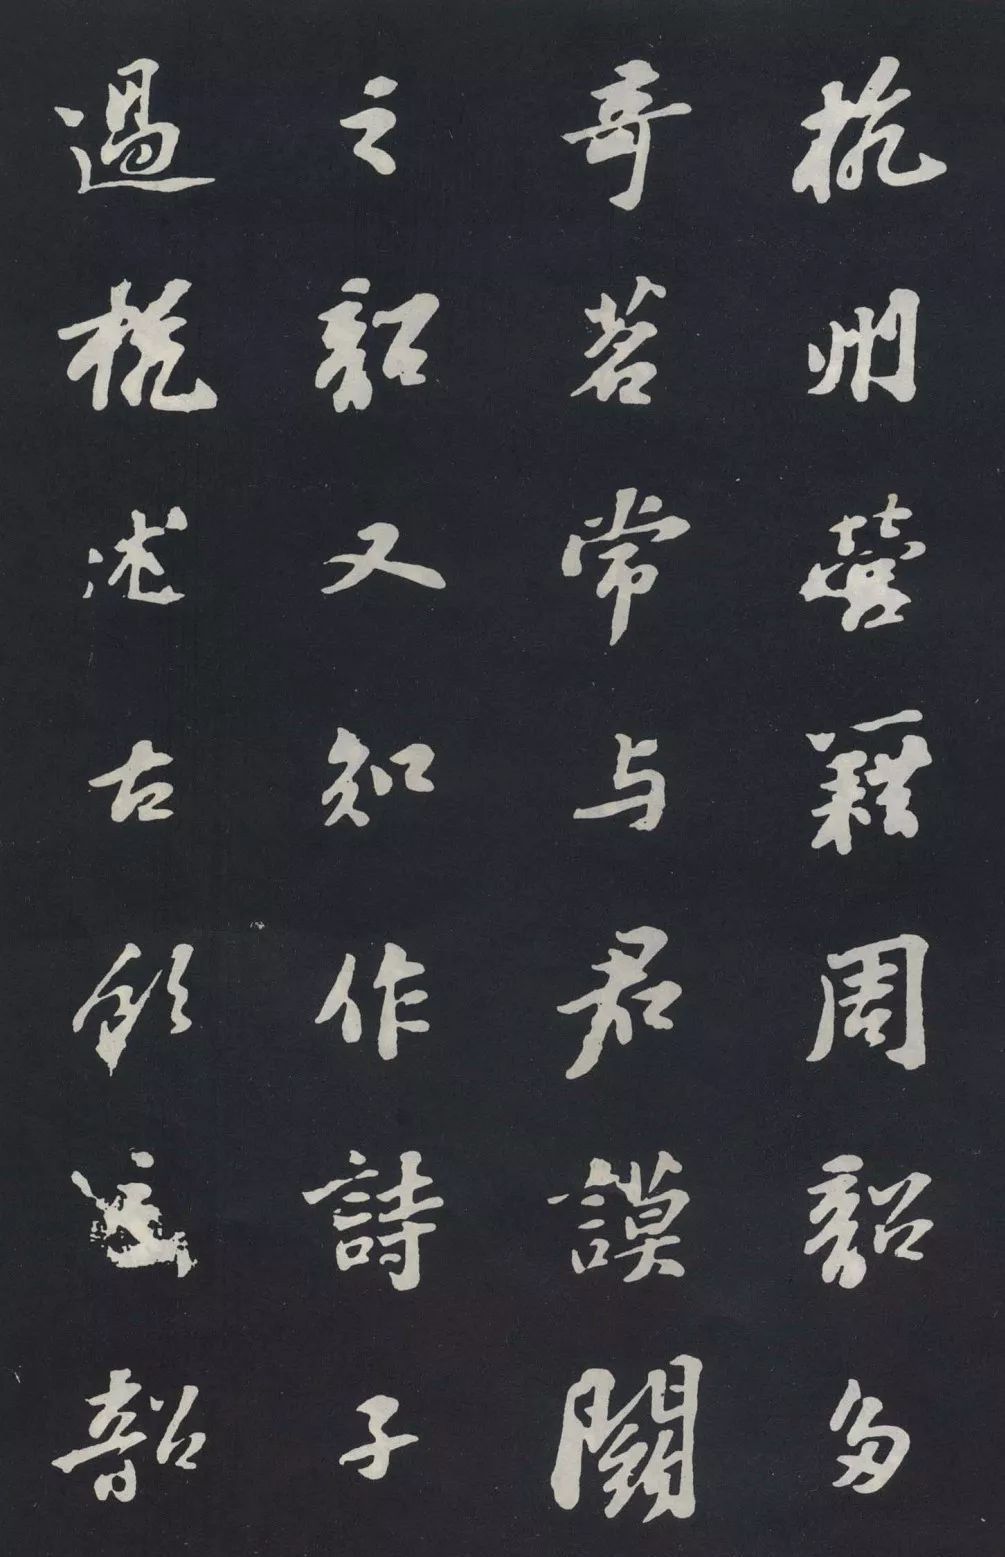 杭州營籍周韶多
奇茗常与君謨鬭
之韶又知作詩子
過杭述古飲之韶